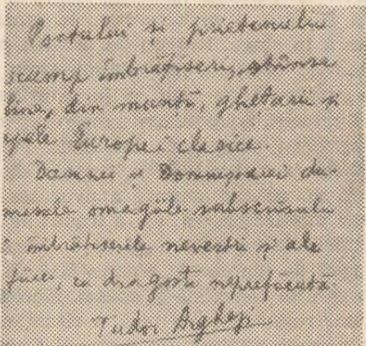 Poetului și prietenului
scump îmbrățișeri, strânse
bine, din munții, ghețarii și
apele Europei clasice.
Doamnei și Domnișoarei du-
mitale omagiile subscrisului
și îmbrățișerile nevestii și ale
fiicei, cu dragoste neprefăcută
Tudor Arghezi